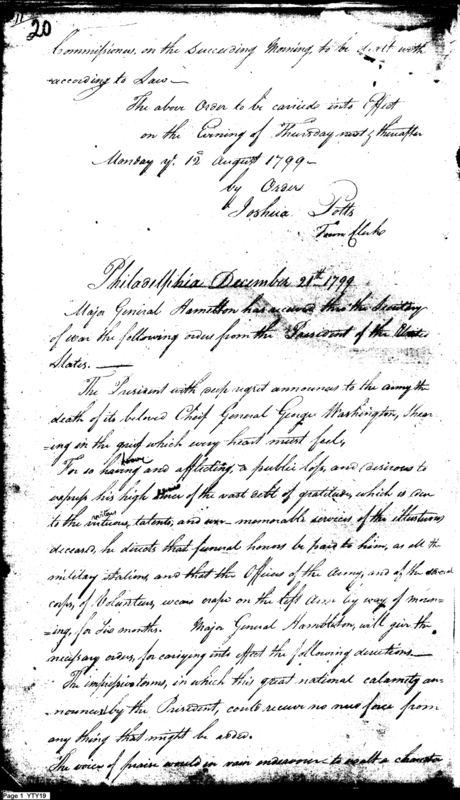 20
Commissioners, on the Succeeding Morning, to be dealt with
according to Law —
The above Order to be carried into Effect
on the Evening of Thursday next & thereafter
Monday ye. 12 August 1799 —
by Order
Joshua Potts
Town Clerk
Philadelphia December 21th 1799
Major General Hamelton has received thro the Secretary
of war the following orders from the President of the United
States. —
The President with deep regret announces to the army the
death of its beloved Cheif General George Washington, Shear-
-ing in the grief which every heart must feel,
For so heavy and afflicting, a public loss, and desirous to
express his high sence of the vast debt of gratitude, which is due
to the virtues, talents, and memorable services, of the illustrious
deceased, he directs that funeral honors be paid to him, at all the
military stations, and that the Officers of the Army, and of the several
corps, of Volunteers, wear crape on the left Arm by way of mourn-
-ing, for Six months. Major General Hambleton, will give the
necessary orders, for carrying into effect the following directions —
The impressive terms, in which this great national calamity an-
nounced by the President, could receive no new force from
any thing that might be added.
The voice of praise would in vain endeavour to exalt a character
Page 1 YTY19